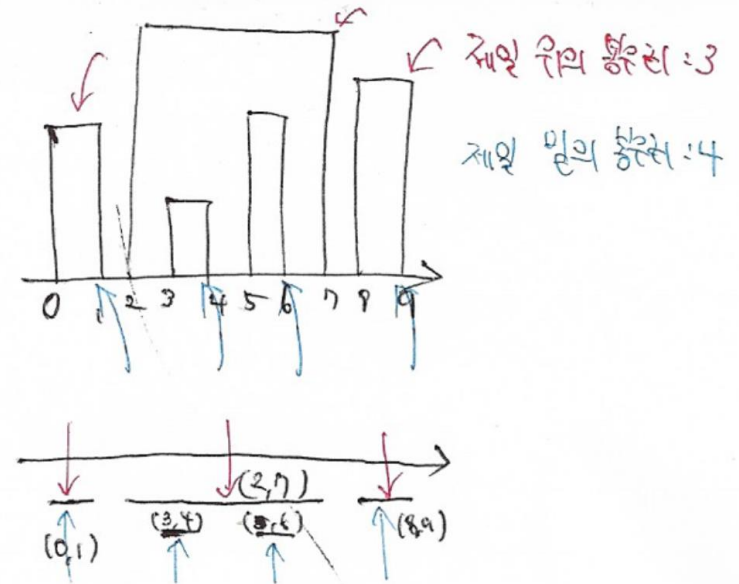 제일 위의 봉우리 : 3
제일 밑의 봉우리 : 4
0 1 2 3 4 5 6 7 8 9
(2,7)
(3,4) (5,6)
(0,1) (8,9)